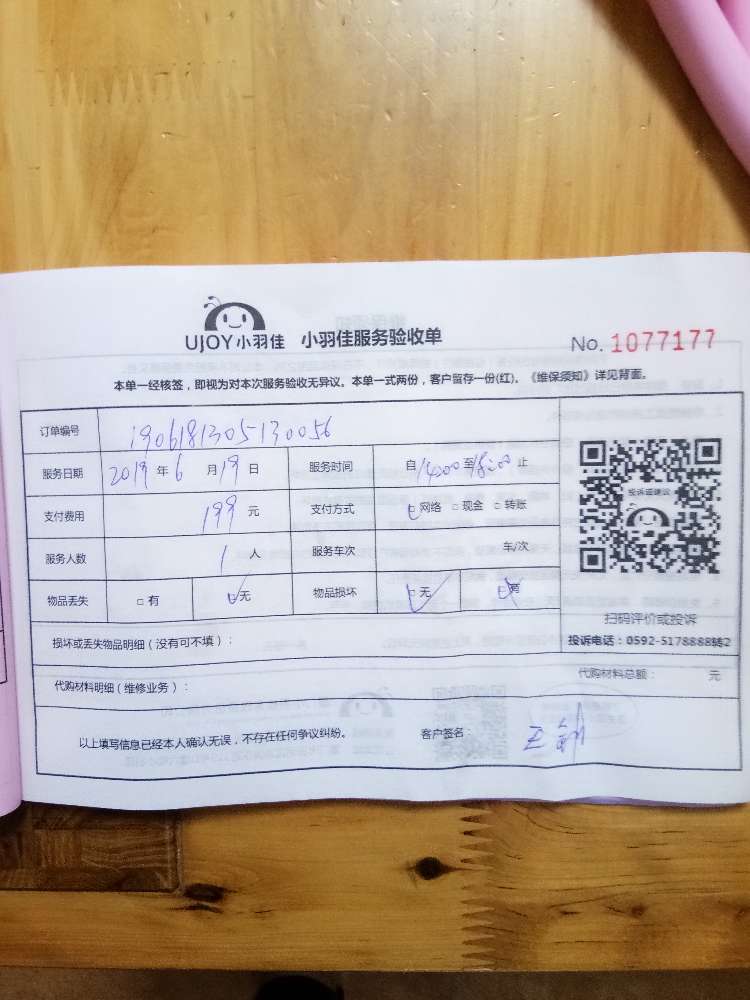 UJOY小羽佳 小羽佳服务验收单 No. 1077177
本单一经核签，即视为对本次服务验收无异议。本单一式两份，客户留存一份(红)。《维保须知》详见背面。
订单编号 1906181305130056
服务日期 2019 年 6 月 19 日 服务时间 自 14:00 至 18:00 止
支付费用 199 元 支付方式 ☑网络 □现金 □转账
服务人数 1 人 服务车次 车/次
物品丢失 □有 ☑无 物品损坏 ☑无 有
投诉或建议
扫码评价或投诉
投诉电话：0592-5178888转2
损坏或丢失物品明细（没有可不填）：
代购材料明细（维修业务）： 代购材料总额： 元
以上填写信息已经本人确认无误，不存在任何争议纠纷。 客户签名：